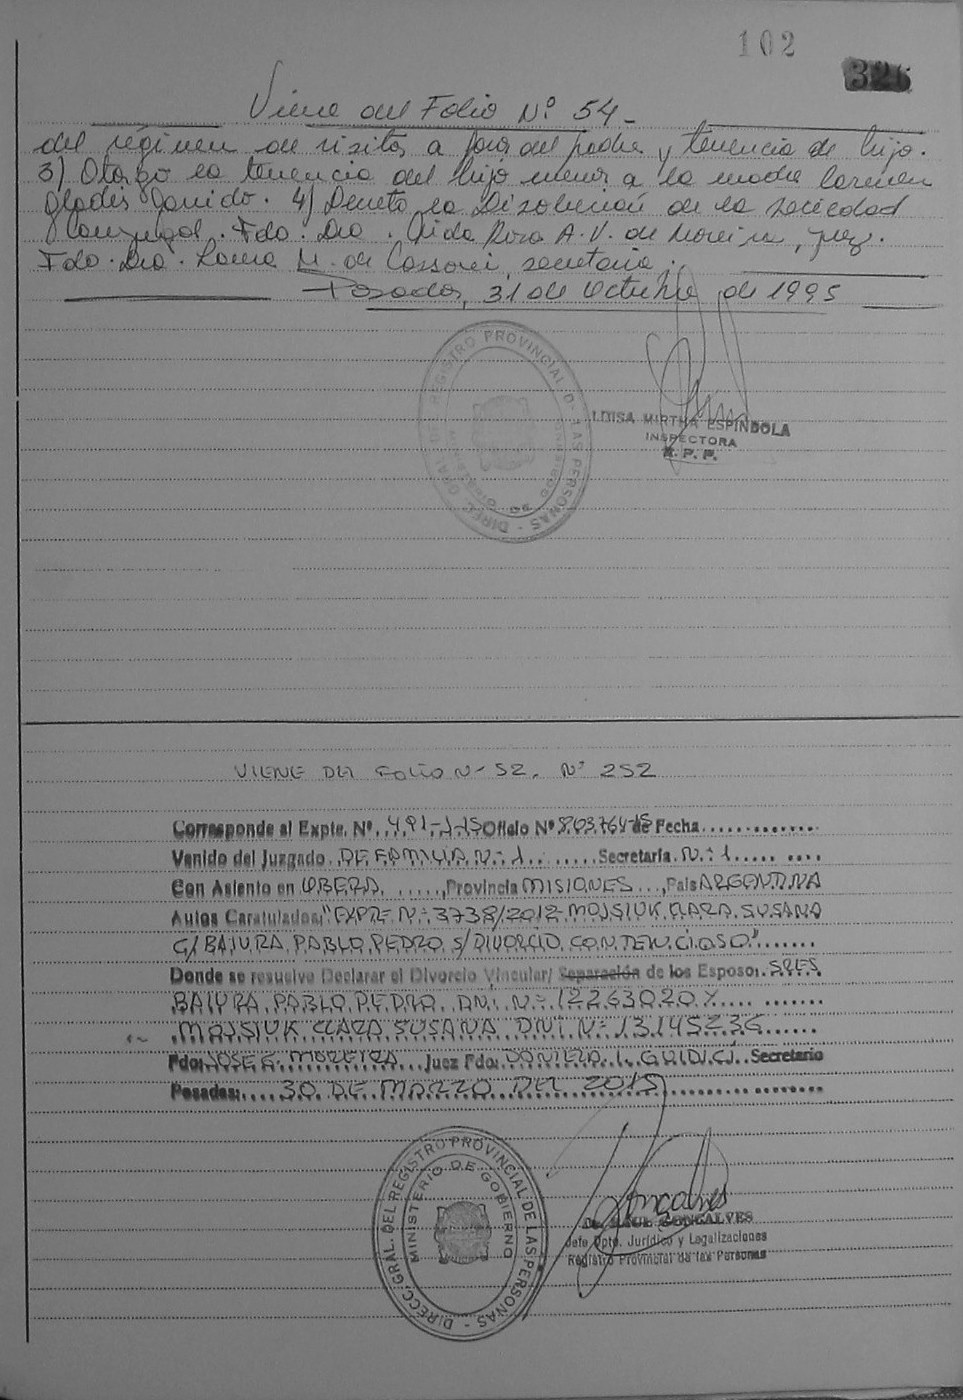 102
326
Viene del Folio Nº 54_
del régimen de visitas a favor del padre y tenencia de hijo.
3) Otorgo la tenencia del hijo menor a la madre Carmen
Gladis Garrido. 4) Decreto la Disolución de la sociedad
Conyugal. Fdo. Dra. Aida Rosa A.V. de Moreira, juez.
Fdo. Dra. M. de Cassoni, secretaria.
Posadas, 31 de Octubre de 1995
DIREC. GRAL. DEL REGISTRO PROVINCIAL D. LAS PERSONAS
LUISA MIRTHA ESPINDOLA
INSPECTORA
R. P. P.
VIENE DEL FOLIO N- 52. Nº 252
Corresponde al Expte. Nº 491-J-15 Oficio Nº 803764-15 de Fecha
Venido del Juzgado DE FAMILIA N: 1 Secretaría N: 1
Con Asiento en OBERA, Provincia MISIONES, País ARGENTINA
Autos Caratulados: "EXPTE N: 3738/2012 MOJSIUK CLARA SUSANA
C/ BAIURA PABLO PEDRO S/ DIVORCIO CONTENCIOSO"
Donde se resuelve Declarar el Divorcio Vincular/ Separación de los Esposos: SRES
BAIURA PABLO PEDRO DNI N: 12263020 Y
MOJSIUK CLARA SUSANA DNI N: 13145236
Fdo: JOSE G. MOREIRA Juez Fdo: I. GUIDICI Secretario
Posadas: 30 DE MARZO DEL 2015
DIRECC. GRAL. DEL REGISTRO PROVINCIAL DE LAS PERSONAS
MINISTERIO DE GOBIERNO
Goncalves
Dr. RAUL GONCALVES
Jefe Dpto. Jurídico y Legalizaciones
Registro Provincial de las Personas